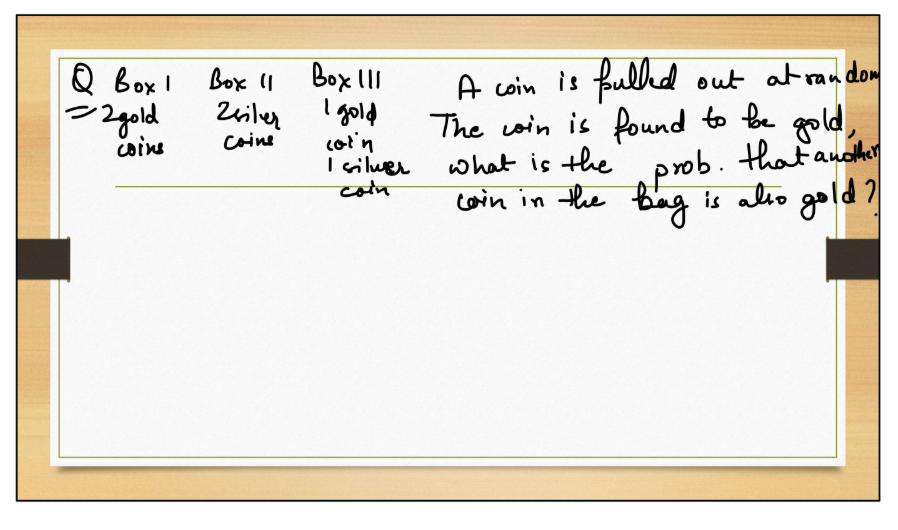 Q Box I Box II Box III
2 gold 2 silver 1 gold
coins coins coin
1 silver
coin
A coin is pulled out at random
The coin is found to be gold,
what is the prob. that another
coin in the bag is also gold?